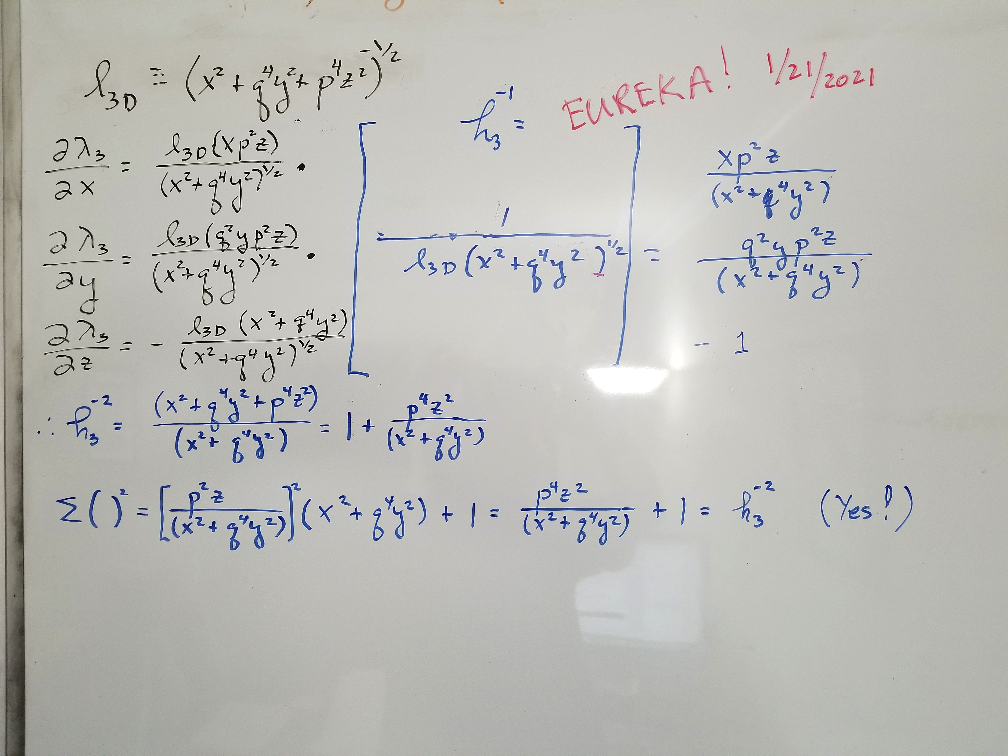 ℓ₃D ≡ (x² + q⁴y² + p⁴z²)^-1/2
h₃⁻¹ =
EUREKA! 1/21/2021
∂λ₃/∂x = ℓ₃D(xp²z)/(x² + q⁴y²)^1/2 • [ 1/(ℓ₃D(x² + q⁴y²)^1/2) ] = xp²z/(x² + q⁴y²)
∂λ₃/∂y = ℓ₃D(q²yp²z)/(x² + q⁴y²)^1/2 • q²yp²z/(x² + q⁴y²)
∂λ₃/∂z = - ℓ₃D(x² + q⁴y²)/(x² + q⁴y²)^1/2 - 1
∴ h₃⁻² = (x² + q⁴y² + p⁴z²)/(x² + q⁴y²) = 1 + p⁴z²/(x² + q⁴y²)
Σ( )² = [p²z/(x² + q⁴y²)]²(x² + q⁴y²) + 1 = p⁴z²/(x² + q⁴y²) + 1 = h₃⁻² (Yes!)